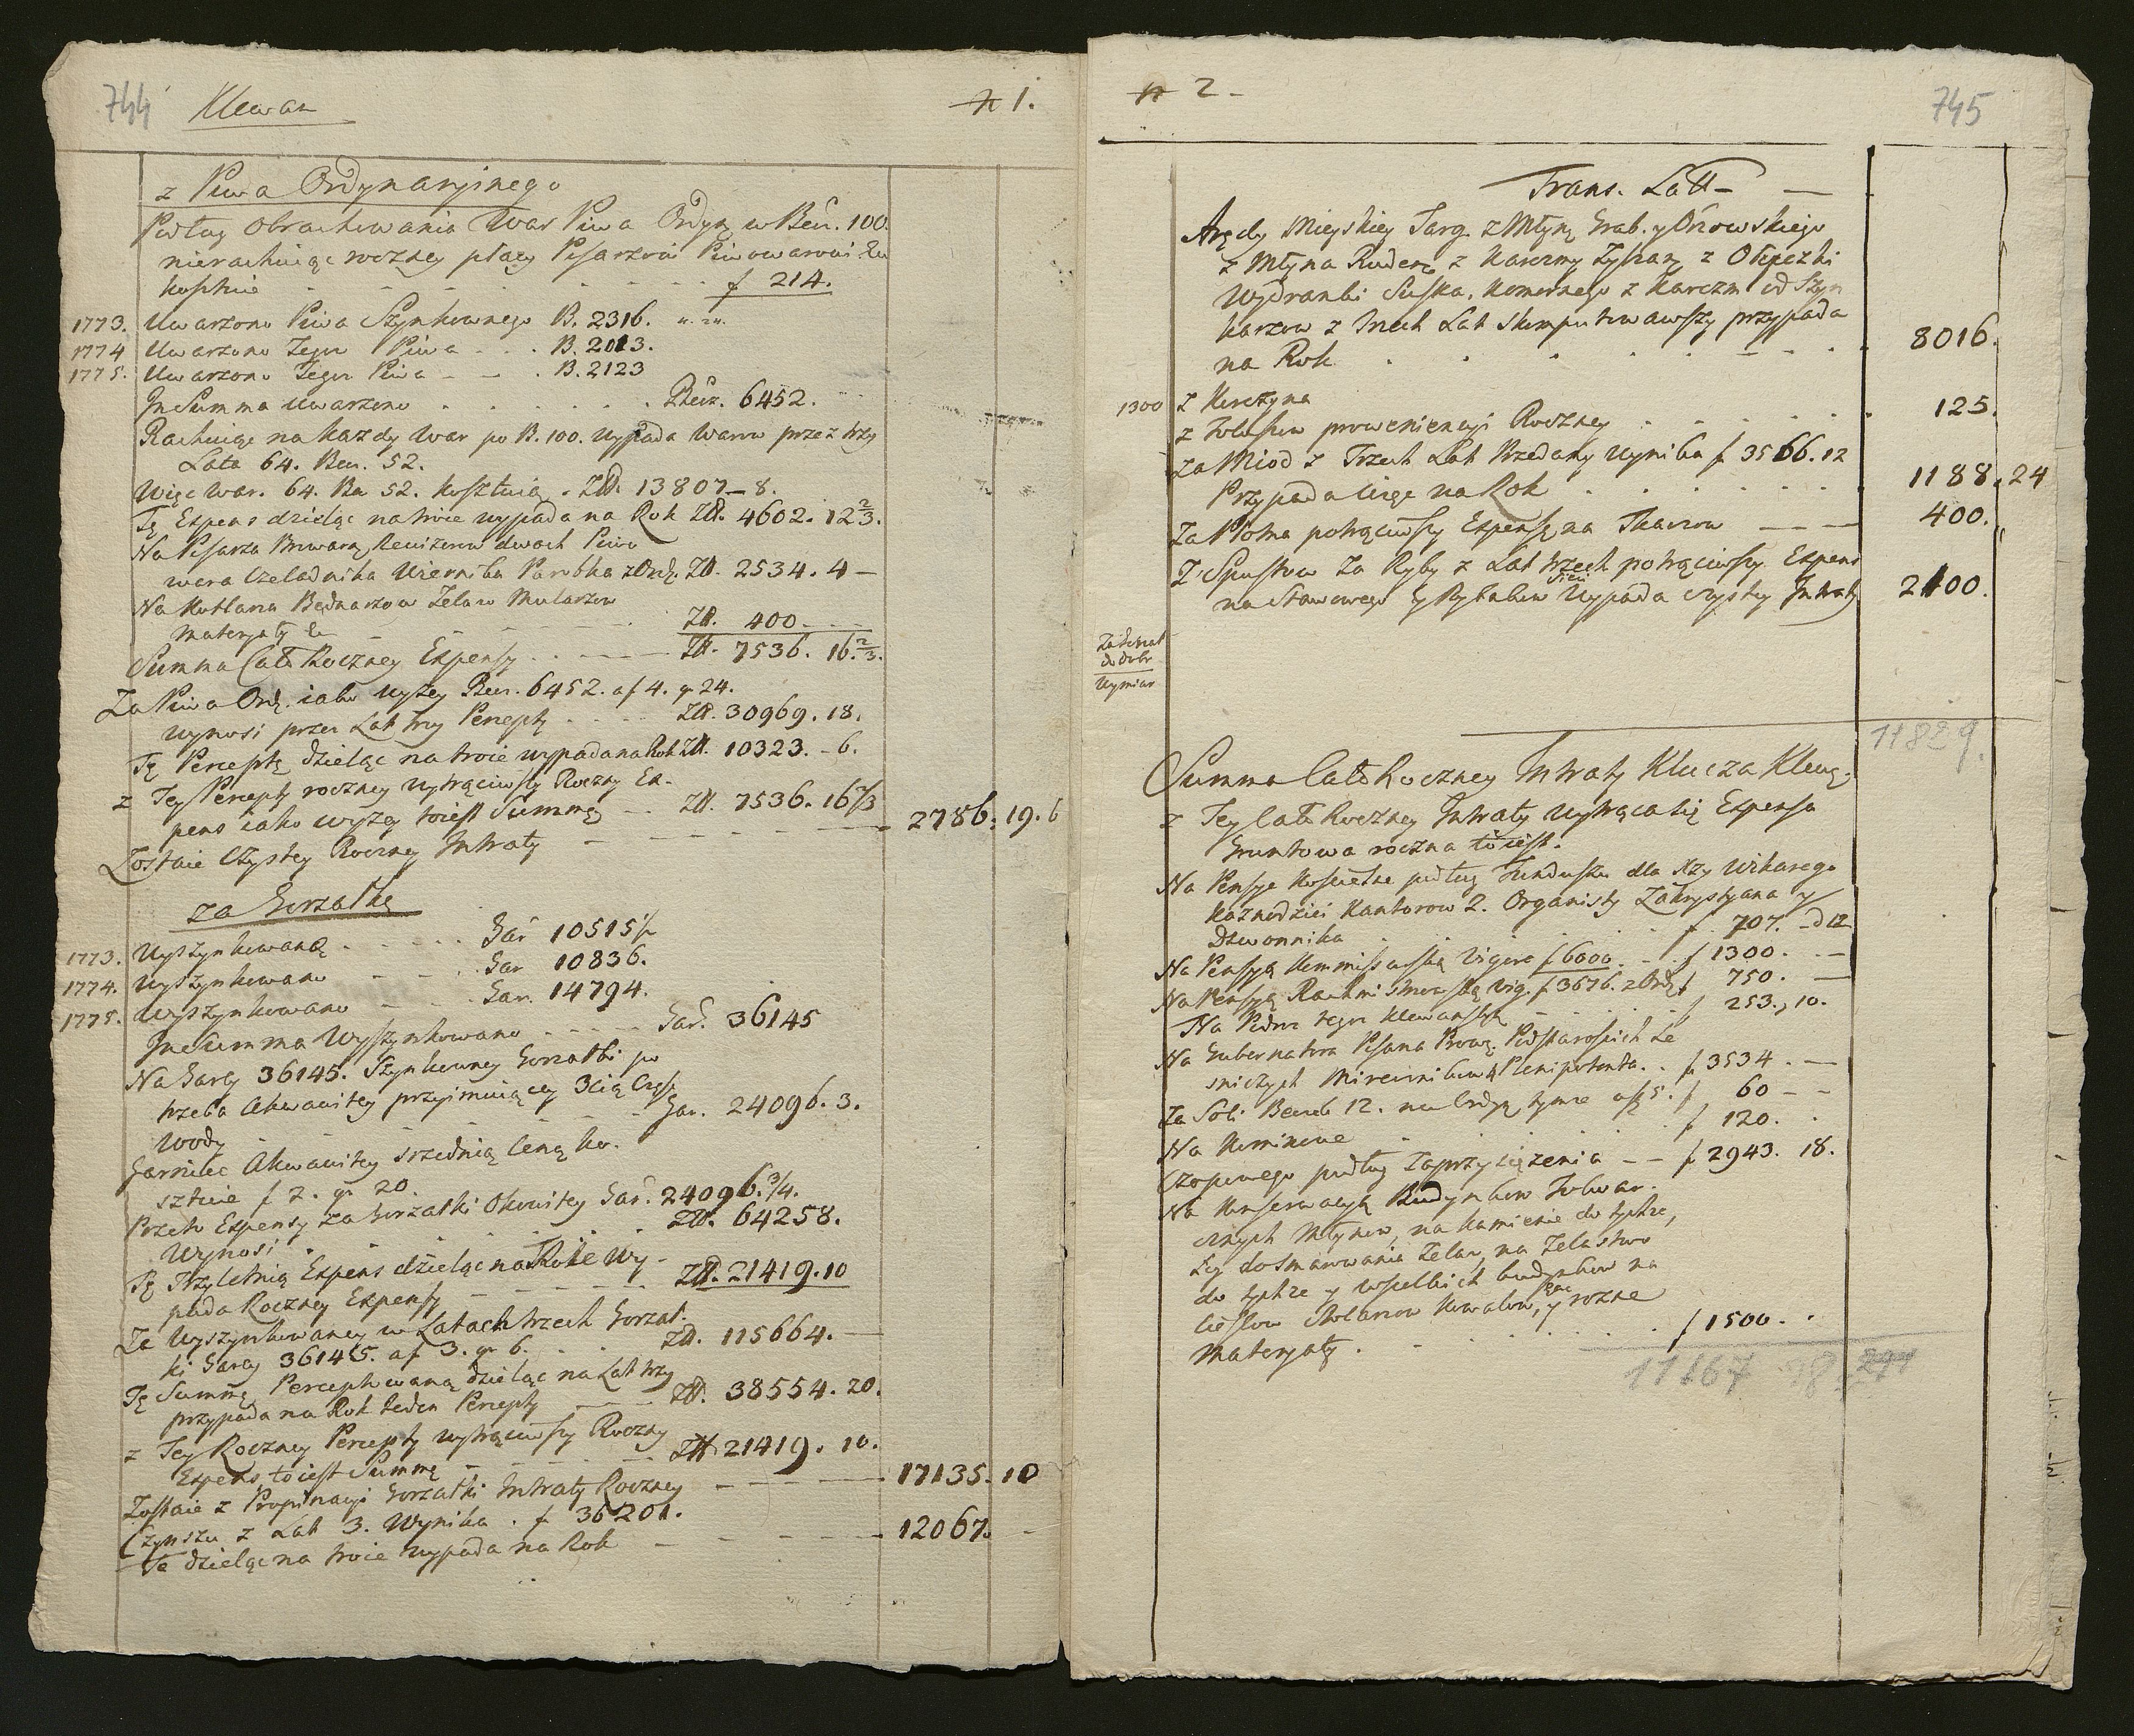 744 Klewań
№ 1.
z Piwa Ordynaryinego
Podług obrachowania War Piwa Ordyņ w Becz. 100.
nierachuiąc roczney płacy Pisarzowi Piwowarowi &c
kosztuie f 214.
1773. Uwarzono Piwa Szynkownego B. 2316.
1774 Uwarzono Tegoż Piwa B. 2013.
1775. Uwarzono Tegoż Piwa B. 2123
In Summa uwarzono Becz. 6452.
Rachuiąc na każdy War po B. 100. wypada Warow przez trzy
Lata 64. Becz. 52.
Więc War. 64. Be 52. kosztuią Zł. 13807 - 8.
Tę Expens dzieląc na troie wypada na Rok Zł. 4602. 12 2/3.
Na Pisarza Browaru, Rewizorow dwoch Piwo
wara Czeladnika Wiernika Parobka z Ordį. Zł. 2534. 4 -
Na Kotlarza Bednarzow Zelazo Mularzow
Materyały &c Zł. 400
Summa Całoroczney Expensy Zł. 7536. 16 2/3.
Za Piwo Ord. iako wyżey Becz. 6452. a f 4. gr 24.
wynosi przez Lat trzy Percepty Zł. 30969. 18.
Tę Perceptę dzieląc na troie wypada na Rok Zł. 10323. - 6.
z Tey Percepty roczney wytrąciwszy Roczny Ex-
pens iako wyżey toiest Summę Zł. 7536. 16 2/3
Zostaie Czystey Roczney Intraty 2786. 19. 6
za Gorzałkę
1773. Wyszynkowaną Gar 10515 1/2
1774. Wyszynkowano Gar 10836.
1775. Wyszynkowano Gar. 14794.
In Summa Wyszynkowano Gar. 36145
Na Garcy 36145. Szynkowney Gorzałki po
trzeba Akwawitey przyimuiącey 3cią Częsć
wody Gar. 24096. 3.
Garniec Akwawitey srzednią ceną ko-
sztuie f 2. gr 20.
Przeto Expensy za Gorzałki Okowitey Gar. 24096. 3/4.
Wynosi Zł. 64258.
Tę Trzyletnią Expens dzieląc na Troie Wy-
pada Roczney Expensy Zł. 21419. 10
Za Wyszynkowaney w Latach trzech Gorzał-
ki Garcy 36145. a f 3. gr 6. Zł. 115664.
Tę Summę Perceptowaną dzieląc na Lat trzy
przypada na Rok ieden Percepty Zł. 38554. 20.
z Tey Roczney Percepty wytrąciwszy Roczny
Expens toiest Summę Zł 21419. 10.
Zostaie z Propinacyi Gorzałki Intraty Roczney 17135. 10
Czynszu z Lat 3. Wynika f 36201.
Te dzieląc na troie wypada na Rok 12067.
№ 2 -
745
Trans. Latt-
Arędy Mieyskiey Targ. z Młyną Grab. y
z Młyna z Karczmy z
Wydranki Suska. Komornego z Karczm od Szyn
karzow z trzech Lat skomputowawszy przypada
na Rok 8016.
1300 z
z Folusza proweniencyi Roczney 125.
Za Miod z Trzech Lat Przedany wynika f 3566. 12
Przypada więc na Rok 1188. 24
Za Płotna potrąciwszy Expensę na Tkaczow 400.
Z Spustow Za Ryby z Lat trzech potrąciwszy Expens
na Stawowego y Rybakow Sieci Wypada czystey Intraty 2100.
Wymiar
11829.
Summa Całoroczney Intraty Klucza Klewą:
z Tey Całoroczney Intraty Wytrąca się Expensa
Gruntowa roczna toiest.
Na Pensye Koscielne podług Funduszu dla Xży Wikarego
Kaznodziei Kantorow 2. Organisty Zakrystyana y
Dzwonnika f 707. - d 12
Na Pensyą Kommissarską Vigore f 6000 f 1300.
Na Pensyą Rachmistrzowską vig. f 3676. z Ordį f 750.
Na Podw tegoż Klewańska f 253., 10.
Na Gubernatora Pisarza Prow. Podstarosciich Le
sniczych Miroczników y Plenipotenta. f 3534.
Za Soli Beczek 12. na Ordyą tymże a f 5. f 60
Na Kominowe f 120.
Czopowego podług Zaprzysiężenia f 2943. 18.
Na Konserwacyą Budynkow Folwar-
cznych Młynow, na Kamienie do tychże,
Łoy do smarowania Zelaz, na Zelastwo
do tychże y wszelkich budynkow na
Cieslow Stolarzow Kowalow, y rozne
Materyały f 1500.
11167 18